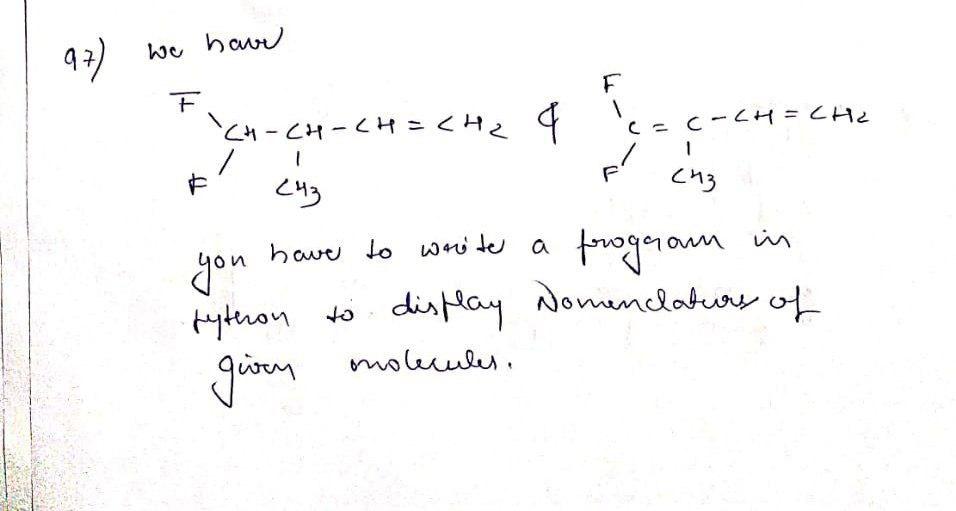 97) We have
F F
CH-CH-CH=CH2 & C=C-CH=CH2
F CH3 F CH3
you have to write a program in
python to display Nomenclature of
given molecules.